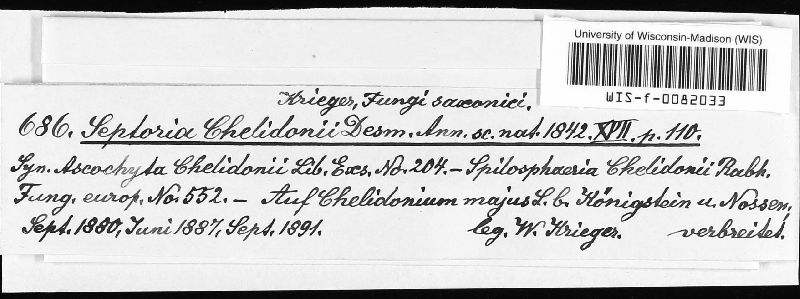 University of Wisconsin-Madison (WIS)
WIS-f-0082033
Krieger, Fungi saxonici.
686. Septoria Chelidonii Desm. Ann. sc. nat. 1842. XVII. p. 110.
Syn. Ascochyta Chelidonii Lib. Exs. No. 204. – Spilosphaeria Chelidonii Rabh.
Fung. europ. No. 552. – Auf Chelidonium majus L. b. Königstein u. Nossen,
Sept. 1880, Juni 1887, Sept. 1891. leg. W. Krieger. verbreitet.